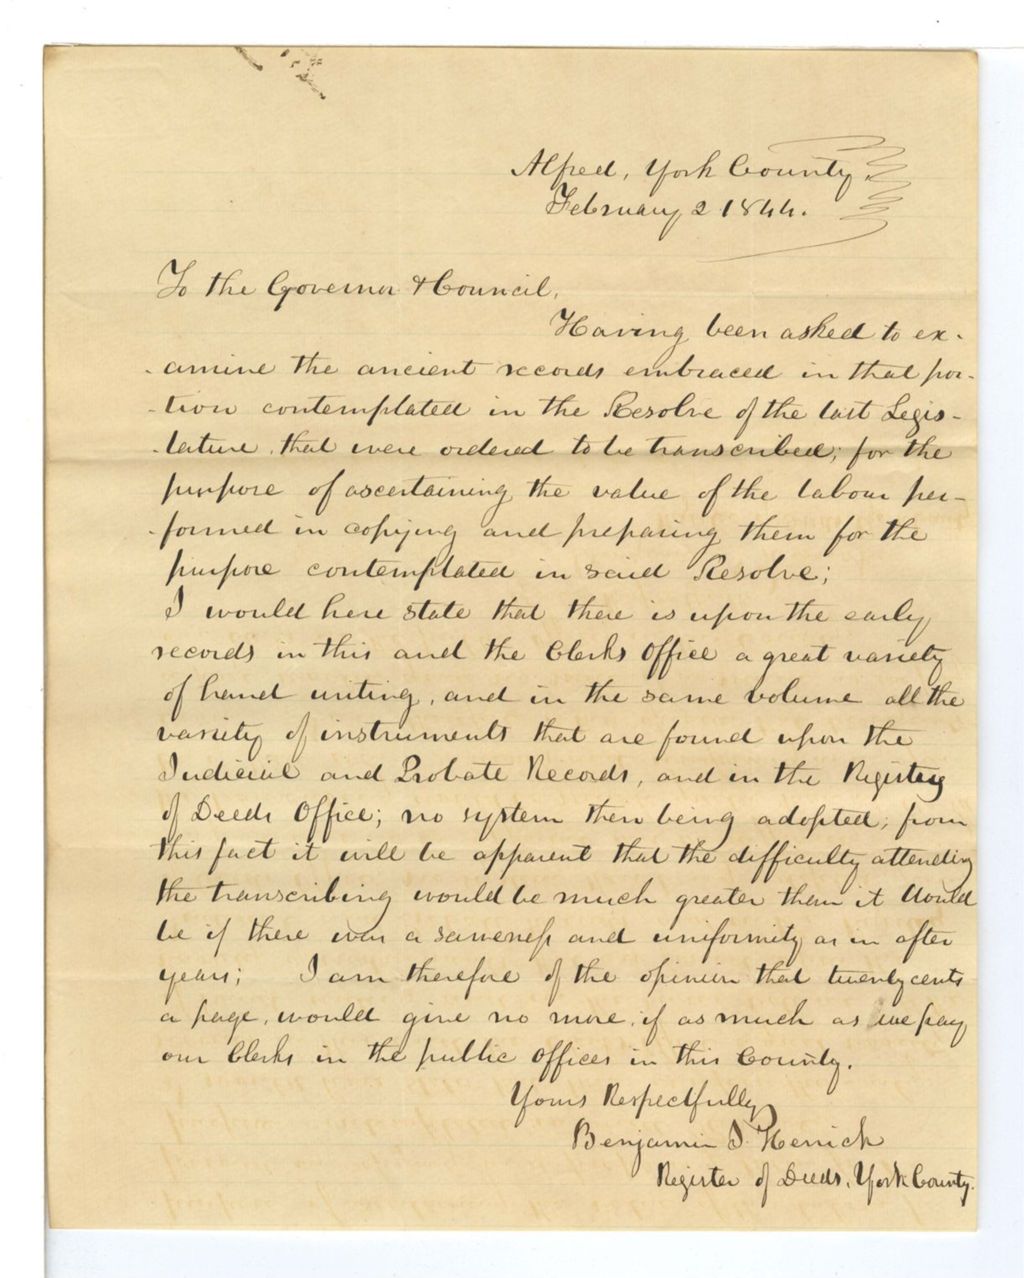 Alfred, York County,
February 2 1844.
To the Governor & Council,
Having been asked to ex-
-amine the ancient records embraced in that por-
-tion contemplated in the Resolve of the last Legis-
-lature, that were ordered to be transcribed; for the
purpose of ascertaining the value of the labour per-
-formed in copying and preparing them for the
purpose contemplated in said Resolve;
I would here state that there is upon the early
records in this and the Clerks Office a great variety
of hand writing, and in the same volume all the
variety of instruments that are found upon the
Judicial and Probate Records, and in the Registry
of Deeds Office; no system then being adopted; from
this fact it will be apparent that the difficulty attending
the transcribing would be much greater than it would
be if there was a sameness and uniformity as in after
years; I am therefore of the opinion that twenty cents
a page, would give no more, if as much as we pay
our Clerks in the public offices in this County.
Yours Respectfully
Benjamin J. Herrick
Register of Deeds, York County.